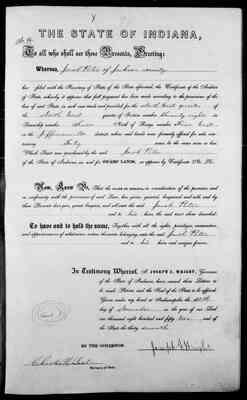 THE STATE OF INDIANA,
To all who shall see these Presents, Greeting:
Whereas, Jacob Peter of Jackson county
has filed with the Secretary of State of the State aforesaid, the Certificate of the Auditor
of State, whereby it appears that full payment has been made according to the provisions of the
law of said State in such case made and provided for the North East quarter
of the North East quarter of Section number Twenty eight in
Township number three North of Range number Four East
in the Jeffersonville district where such lands were formerly offered for sale con-
taining forty acres to the same more or less
Which Tract was purchased by the said Jacob Peter
of the State of Indiana as and for SWAMP LANDS, as appears by Certificate No.
Now, Know Ye, That the state in
conformity with the provisions of said
these Presents does give, grant, bargain, and sell unto the said Jacob Peter
and to his heirs the said tract above described.
To have and to hold the same, Together with all the rights, privileges, immunities,
and appurtenances of whatsoever nature thereunto belonging unto the said Jacob Peter
and to his heirs and assigns forever.
In Testimony Whereof, I, JOSEPH A. WRIGHT, Governor
of the State of Indiana, have caused these Letters to
be made Patent, and the Seal of the State to be affixed.
Given under my hand at Indianapolis the
day of in the year of our Lord
one thousand eight hundred and fifty and of
the State the thirty seventh
BY THE GOVERNOR.
Joseph A. Wright
Charles H. Test
Secretary of State.